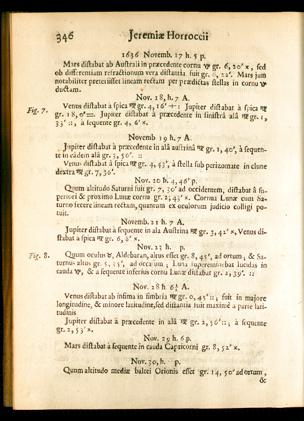 346 Jeremiæ Horroccii
1636 Novemb. 17 h. 5 p.
Mars distabat ab Australi in præcedente cornu ♑ gr. 6, 20′ ×, sed
ob differentiam refractionum vera distantia fuit gr. 22′. Mars jam
notabiliter præteriisset lineam rectam per prædictas stellas in cornu ♑
ductam.
Nov. 18, h. 7 A.
Fig. 7. Venus distabat à spica ♍ gr. 4, 16′ Jupiter distabat à spica ♍
gr. 18, 0′ Jupiter distabat à præcedente in sinistrâ alâ ♍ gr. 1,
33′ ::, à sequente gr. 4, 6′ ×.
Novemb 19 h. 7 A.
Jupiter distabat à præcedente in alâ austrina ♍ gr. 1, 40′, à sequen-
te in eâdem alâ gr. 3, 50′. ::
Venus distabat à spica ♍ gr. 4, 53′, à stella sub perizomate in clune
dextra ♍ gr. 7, 30′.
Nov. 20 h. 4, 46′ p.
Quum altitudo Saturni fuit gr. 7, 30′ ad occidentem, distabat à su-
periori & proximo Lunæ cornu gr. 2, 43′ ×. Cornua Lunæ cum Sa-
turno fecere lineam rectam, quantum ex oculorum judicio colligi po-
tuit.
Novemb. 21 h. 7 A.
Jupiter distabat à sequente in ala Austrina ♍ gr. 3, 42′ ×, Venus di-
stabat à spica ♍ gr. 6, 2′ ×.
Nov. 23 h. p.
Fig. 8. Quum oculus ♉, Aldebaran, altus esset gr. 8, 45′, ad ortum, & Sa-
turnus altus gr. 5, 35′, ad occasum, Luna supereminebat lucidas in
cauda ♑, & a sequente inferius cornu Lunæ distabat gr. 2, 39′. ::
Nov. 28 h 6¾ A.
Venus distabat ab infima in fimbria ♍ gr. 0, 45′ ::, fuit in majore
longitudine, & minore latitudine, sed distantia fuit maxime a parte lati-
tudinis
Jupiter distabat à præcedente in alâ ♍ gr. 2, 56′ ::, à sequente
gr. 2, 53′ ×.
Nov. 29 h. 6 p.
Mars distabat à sequente in cauda Capricorni gr. 8, 52′ ×.
Nov. 30, h. p.
Quum altitudo mediæ baltei Orionis esset gr. 14, 50′ ad ortum,
&c